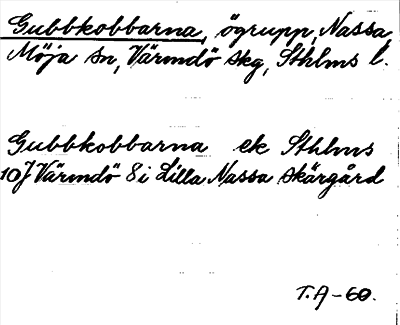 Gubbkobbarna, ögrupp, Nassa,
Möja sn, Värmdö skg, Sthlms l.
Gubbkobbarna ek Sthlms
10J Värmdö 8i Lilla Nassa skärgård
T.A-60.